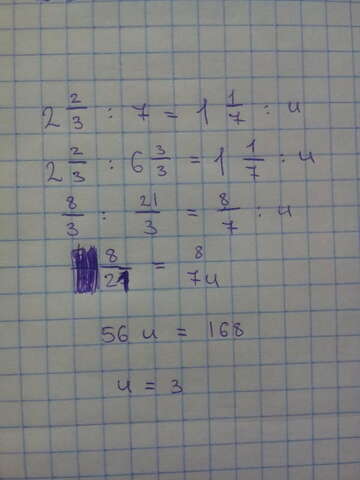 2 2/3 : 7 = 1 1/7 : u
2 2/3 : 6 3/3 = 1 1/7 : u
8/3 : 21/3 = 8/7 : u
8/21 = 8/7u
56 u = 168
u = 3